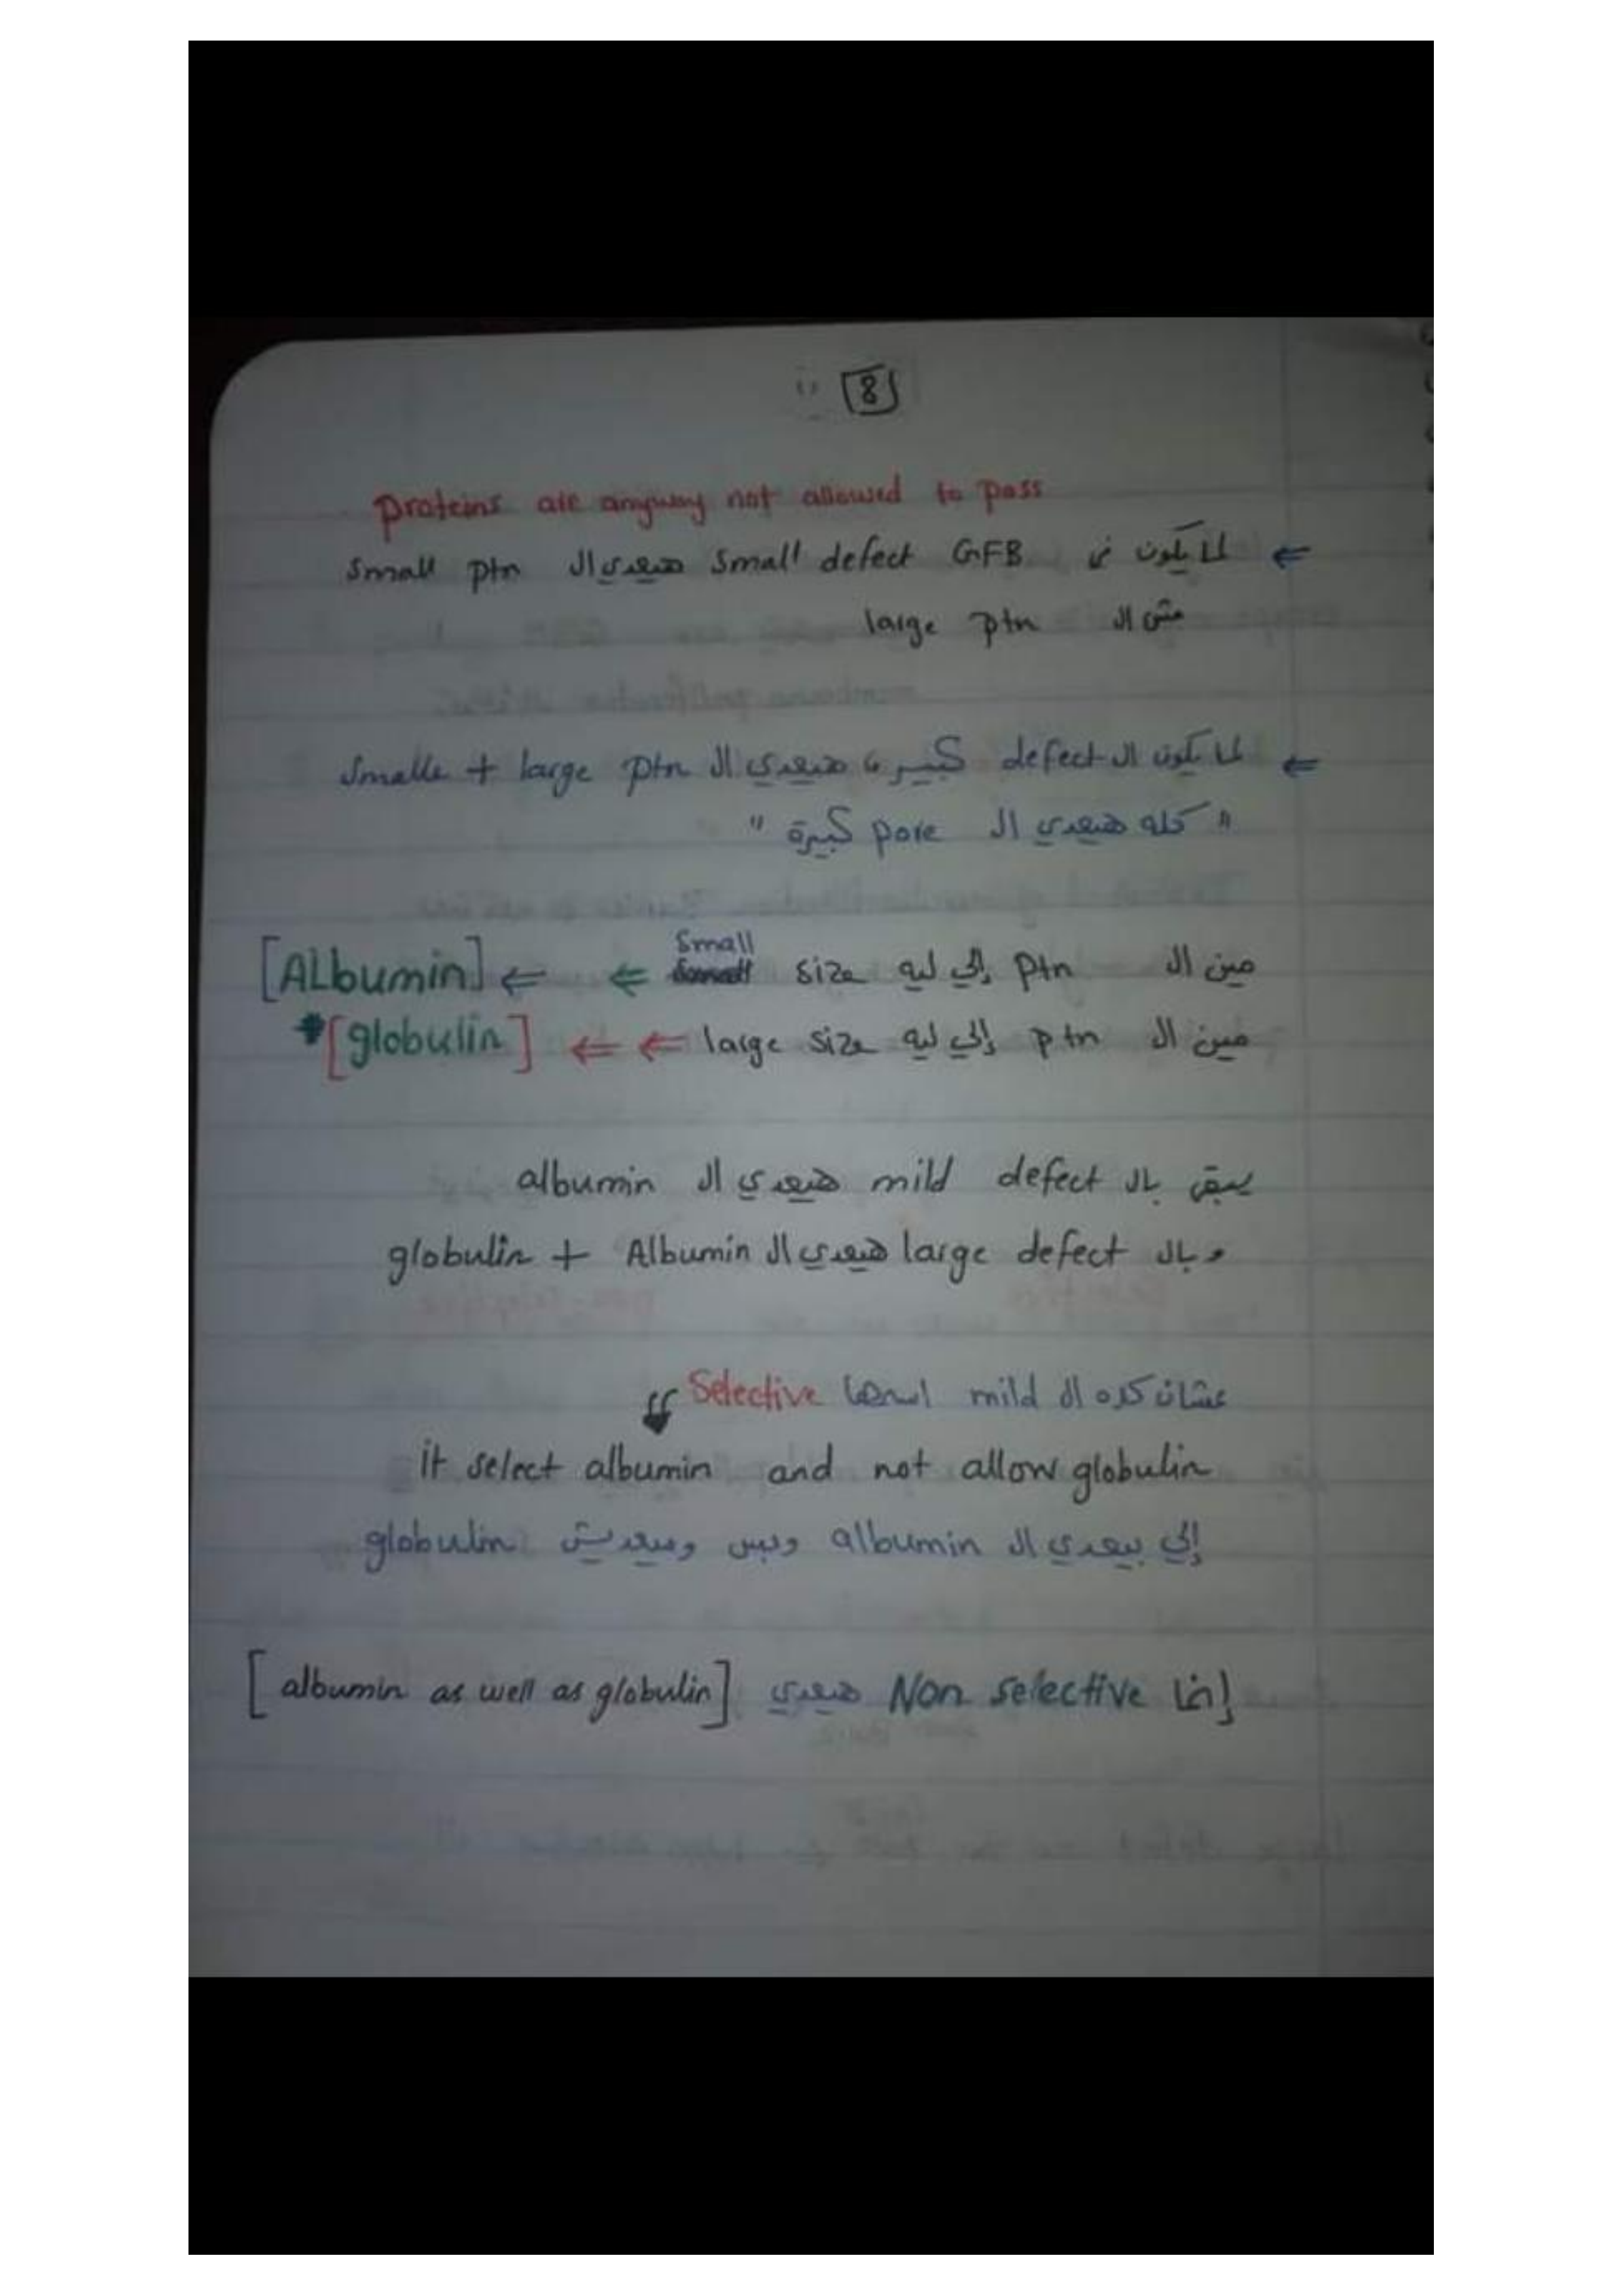 8
proteins are anyway not allowed to pass
⇐ لما يكون في small defect GFB هيعدي ال small ptn
مش ال large ptn
⇐ لما يكون ال defect كبير، هيعدي ال smalle + large ptn
" كله هيعدي ال pore كبيرة "
مين ال ptn إلي ليه size small ⇐ ⇐ [ALbumin]
مين ال ptn إلي ليه large size ⇐ ⇐ [globulin]
يبقى بال mild defect هيعدي ال albumin
و بال large defect هيعدي ال globulin + Albumin
عشان كده ال mild اسمها Selective
it select albumin and not allow globulin
إلي بيعدي ال albumin وبس وميعديش globulin
إنما Non selective هيعدي [albumin as well as globulin]